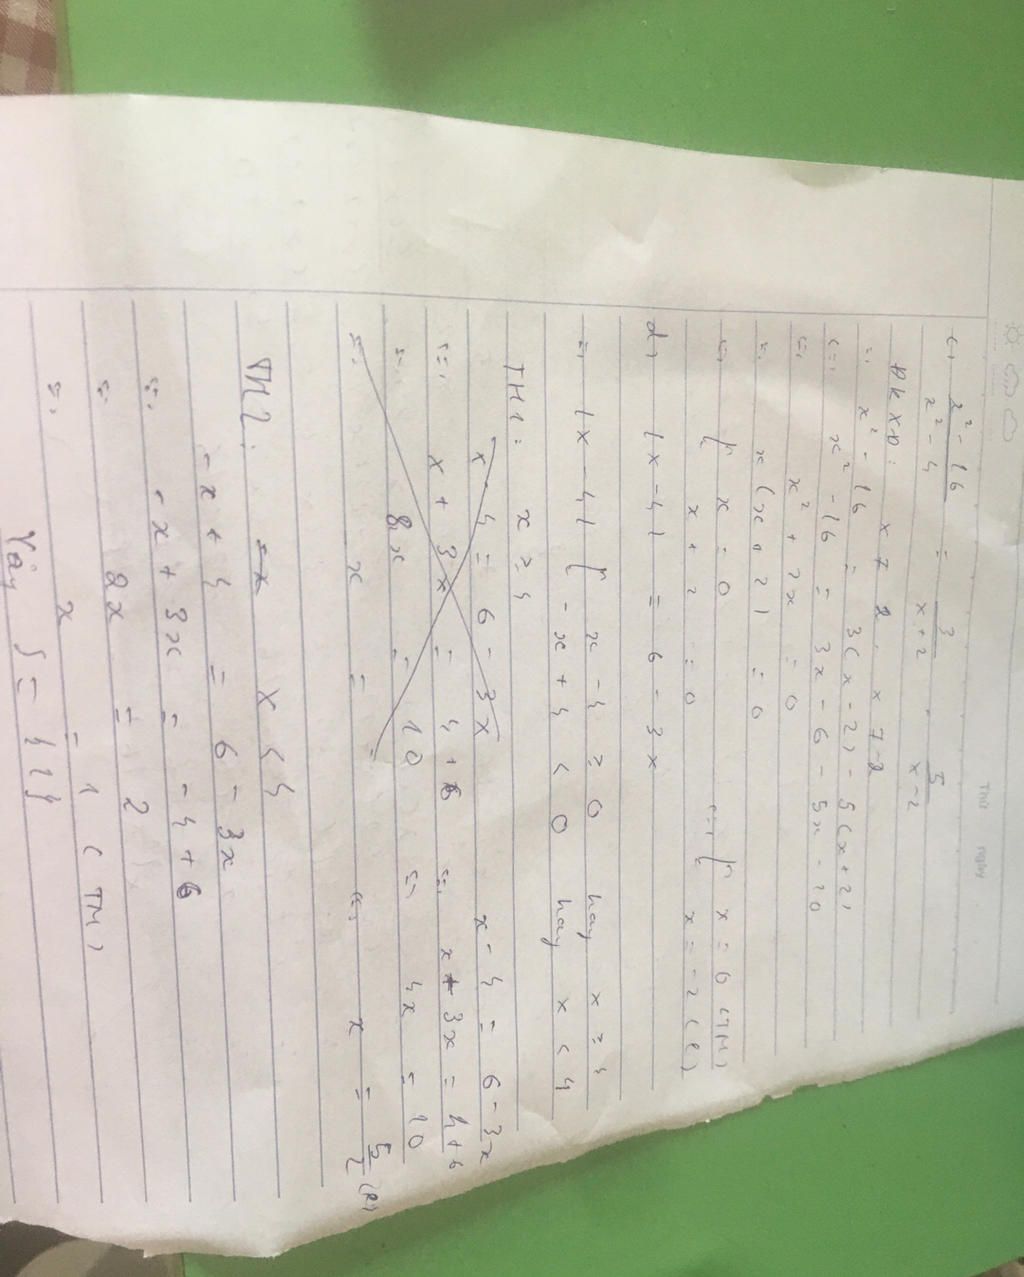 Thứ ngày
c, x² - 16 / x² - 4 = 3 / x+2 - 5 / x-2
ĐKXĐ: x ≠ 2, x ≠ -2
=, x² - 16 = 3(x - 2) - 5(x + 2)
<=, x² - 16 = 3x - 6 - 5x - 10
<=, x² + 2x = 0
=, x(x + 2) = 0
<=, [ x = 0 <=, [ x = 0 (TM)
x + 2 = 0 x = -2 (L)
d, |x - 4| = 6 - 3x
=, |x - 4| [ x - 4 ≥ 0 hay x ≥ 4
- x + 4 < 0 hay x < 4
TH1: x ≥ 4
x - 4 = 6 - 3x x - 4 = 6 - 3x
<=, x + 3x = 4 + 6 <=, x + 3x = 4 + 6
<=, 8x = 10 <=, 4x = 10
<=, x = <=, x = 5/2 (L)
TH2: x < 4
- x + 4 = 6 - 3x
<=, - x + 3x = - 4 + 6
<=, 2x = 2
<=, x = 1 (TM)
Vậy S = {1}